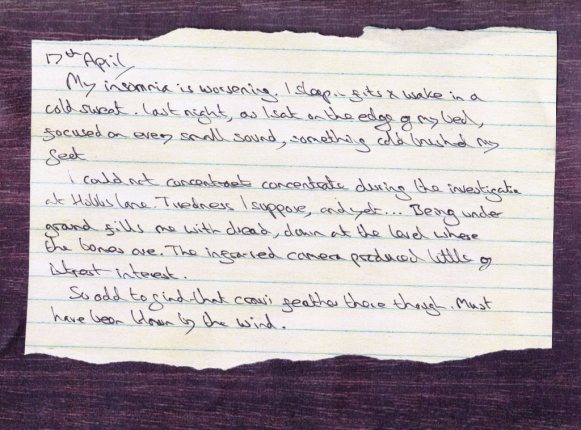 17th April
My insomnia is worsening. I sleep in fits & wake in a
cold sweat. Last night, as I sat on the edge of my bed,
focused on every small sound, something cold brushed my
feet
I could not concentrate concentrate during the investigation
at Hobbs Lane. Tiredness I suppose, and yet... Being under
ground fills me with dread, down at the level where
the bones are. The infrared camera produced little of
interest interest.
So odd to find that crow's feather there though. Must
have been blown by the wind.